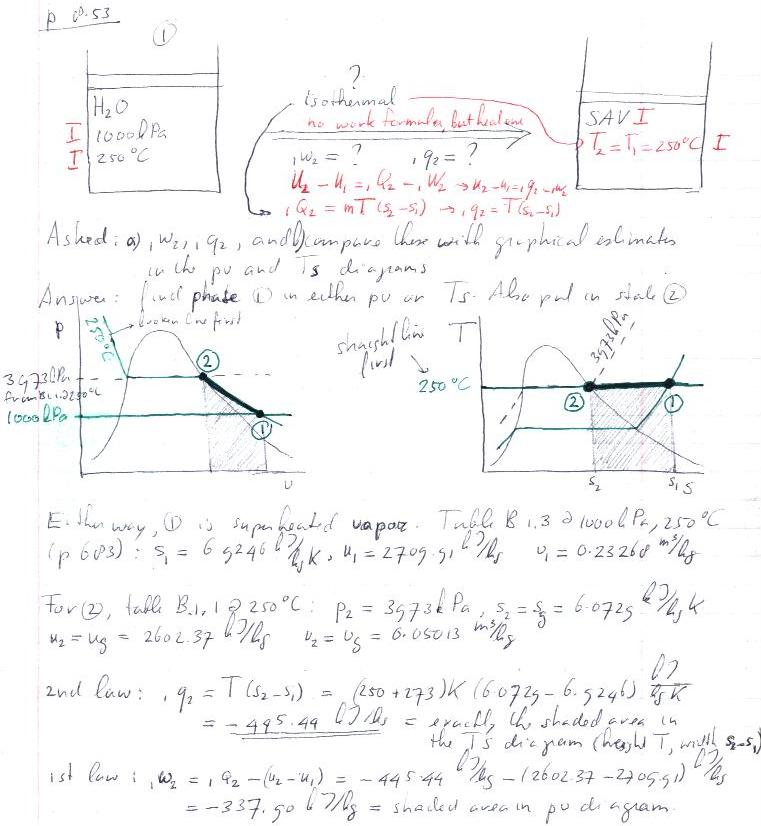 p 8.53
①
?
H₂O
1000kPa
250°C
I
I
isothermal
no work formula, but heat one
₁w₂ = ? ₁q₂ = ?
u₂ - u₁ = ₁Q₂ - ₁W₂ → u₂-u₁=₁q₂-₁w₂
₁Q₂ = mT(s₂-s₁) → ₁q₂ = T(s₂-s₁)
SAV I
T₂=T₁=250°C I
Asked: a) ₁w₂, ₁q₂, and b) compare these with graphical estimates
in the pv and Ts diagrams
Answer: find phase ① in either pv or Ts. Also put in state ②
p
250°C
broken line first
②
3973kPa
from B.1.1 @ 250°C
1000kPa
①
v
straight line
first
T
3973kPa
250°C
②
①
s₂
s₁
s
Either way, ① is superheated vapor. Table B 1.3 @ 1000kPa, 250°C
(p 683): s₁ = 6.9246 kJ/kg K, u₁ = 2709.91 kJ/kg v₁ = 0.23268 m³/kg
For ②, table B.1.1 @ 250°C: p₂ = 3973kPa, s₂ = s_g = 6.0729 kJ/kg K
u₂ = u_g = 2602.37 kJ/kg v₂ = v_g = 0.05013 m³/kg
2nd law: ₁q₂ = T(s₂-s₁) = (250+273)K (6.0729 - 6.9246) kJ/kg K
= -445.44 kJ/kg = exactly the shaded area in
the Ts diagram (height T, width s₂-s₁)
1st law: ₁w₂ = ₁q₂ - (u₂-u₁) = -445.44 kJ/kg - (2602.37 - 2709.91) kJ/kg
= -337.90 kJ/kg = shaded area in pv diagram.